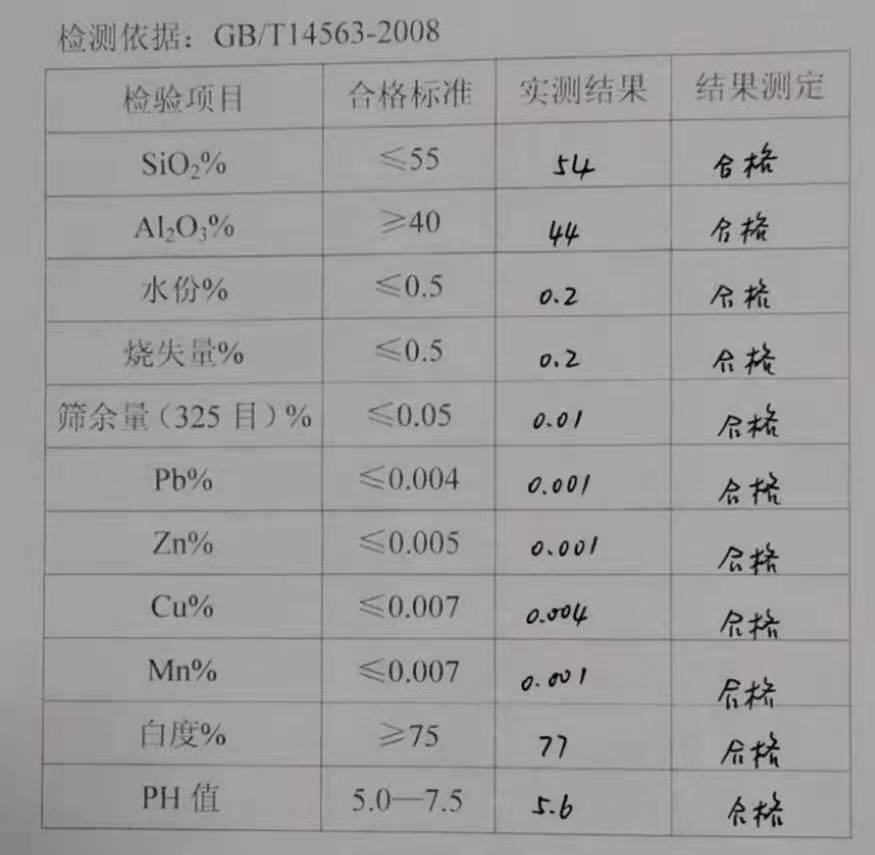 检测依据：GB/T14563-2008
检验项目 合格标准 实测结果 结果测定
SiO₂% ≤55 54 合格
Al₂O₃% ≥40 44 合格
水份% ≤0.5 0.2 合格
烧失量% ≤0.5 0.2 合格
筛余量（325 目）% ≤0.05 0.01 合格
Pb% ≤0.004 0.001 合格
Zn% ≤0.005 0.001 合格
Cu% ≤0.007 0.004 合格
Mn% ≤0.007 0.001 合格
白度% ≥75 77 合格
PH 值 5.0—7.5 5.6 合格